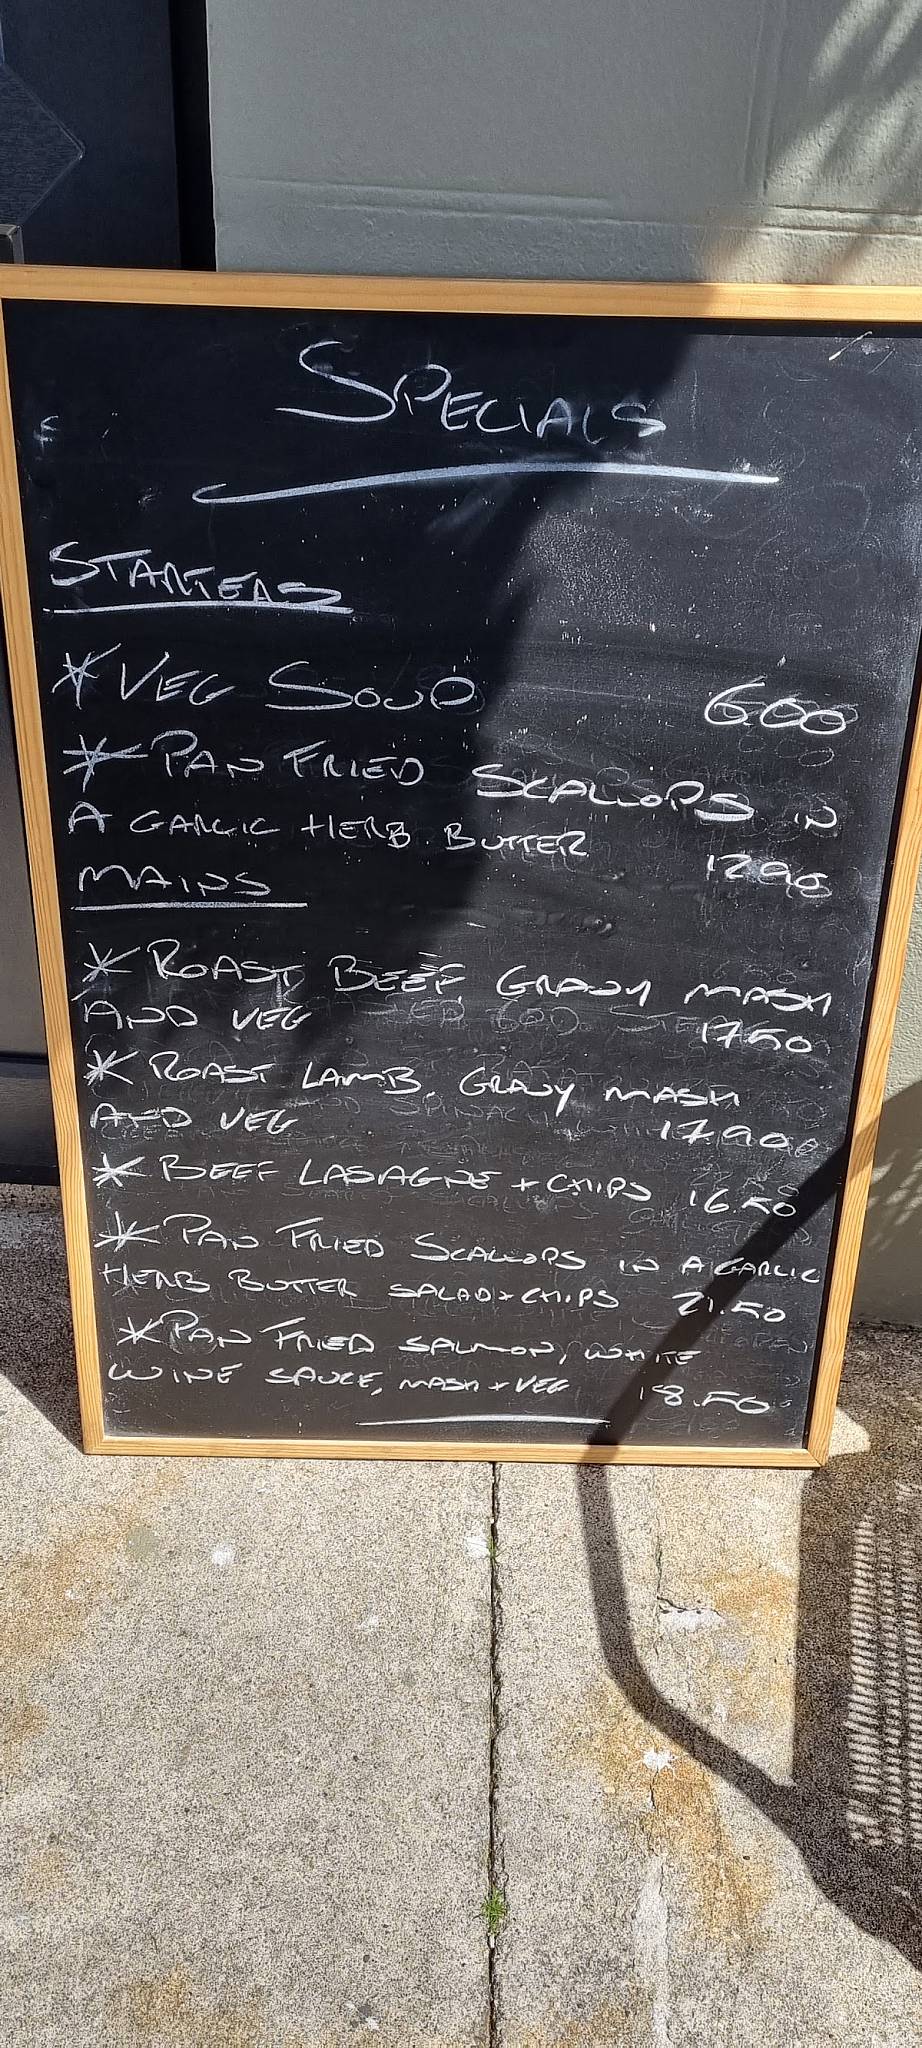 SPECIALS
STARTERS
* VEG SOUP 6.00
* PAN FRIED SCALLOPS IN
A GARLIC HERB BUTTER 12.95
MAINS
* ROAST BEEF GRAVY MASH
AND VEG 17.50
* ROAST LAMB, GRAVY MASH
AND VEG 17.90
* BEEF LASAGNE + CHIPS 16.50
* PAN FRIED SCALLOPS IN A GARLIC
HERB BUTTER SALAD + CHIPS 21.50
* PAN FRIED SALMON, WHITE
WINE SAUCE, MASH + VEG 18.50